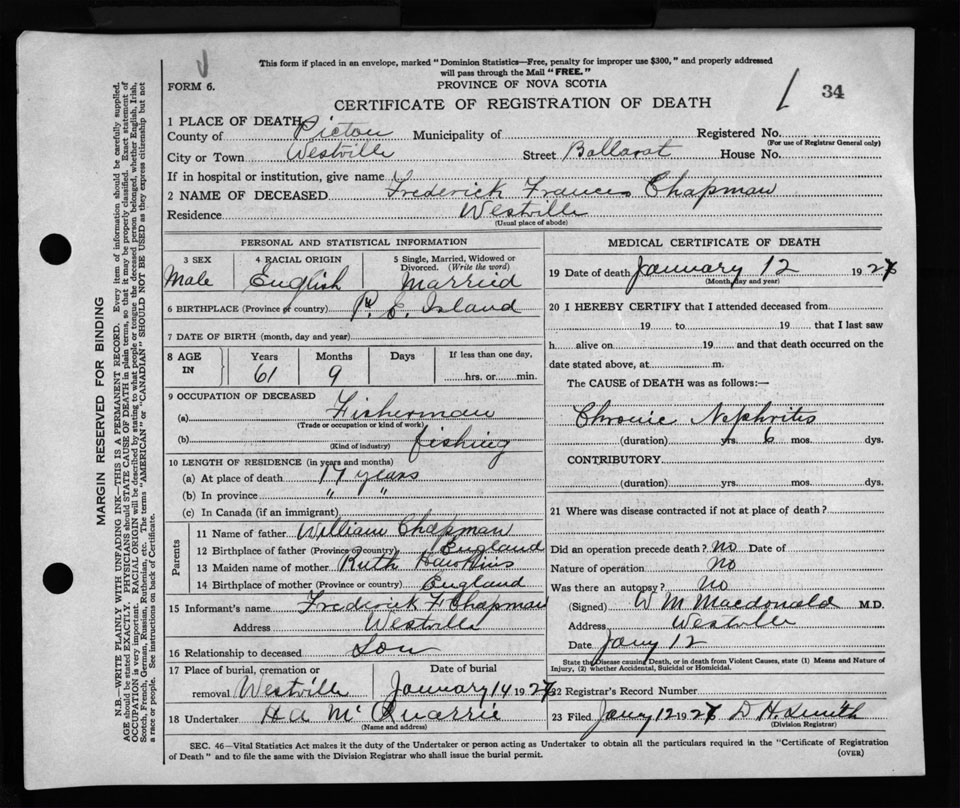 This form if placed in an envelope, marked "Dominion Statistics—Free, penalty for improper use $300," and properly addressed
will pass through the Mail "FREE."
FORM 6.
PROVINCE OF NOVA SCOTIA
CERTIFICATE OF REGISTRATION OF DEATH
34
1 PLACE OF DEATH
County of Pictou Municipality of Registered No.
(For use of Registrar General only)
City or Town Westville Street Ballarat House No.
If in hospital or institution, give name
2 NAME OF DECEASED Frederick Frances Chapman
Residence Westville
(Usual place of abode)
PERSONAL AND STATISTICAL INFORMATION
3 SEX Male
4 RACIAL ORIGIN English
5 Single, Married, Widowed or Divorced. (Write the word) Married
6 BIRTHPLACE (Province or country) P. E. Island
7 DATE OF BIRTH (month, day and year)
8 AGE IN Years 61 Months 9 Days If less than one day, hrs. or min.
9 OCCUPATION OF DECEASED
(a) Fisherman
(Trade or occupation or kind of work)
(b) fishing
(Kind of industry)
10 LENGTH OF RESIDENCE (in years and months)
(a) At place of death 17 years
(b) In province " "
(c) In Canada (if an immigrant)
Parents
11 Name of father William Chapman
12 Birthplace of father (Province or country) England
13 Maiden name of mother Ruth Hawkins
14 Birthplace of mother (Province or country) England
15 Informant's name Frederick F Chapman
Address Westville
16 Relationship to deceased Son
17 Place of burial, cremation or removal Westville
Date of burial January 14 1927
18 Undertaker H A McQuarrie
(Name and address)
MEDICAL CERTIFICATE OF DEATH
19 Date of death January 12 1927
(Month, day and year)
20 I HEREBY CERTIFY that I attended deceased from
19 to 19 that I last saw
h alive on 19 and that death occurred on the
date stated above, at m.
The CAUSE of DEATH was as follows:—
Chronic Nephritis
(duration) yrs. 6 mos. dys.
CONTRIBUTORY
(duration) yrs. mos. dys.
21 Where was disease contracted if not at place of death?
Did an operation precede death? no Date of
Nature of operation no
Was there an autopsy? no
(Signed) W M Macdonald M.D.
Address Westville
Date Jany 12
State the Disease causing Death, or in death from Violent Causes, state (1) Means and Nature of
Injury, and (2) whether Accidental, Suicidal or Homicidal.
22 Registrar's Record Number
23 Filed Jany 12 1927 D H Smith
(Division Registrar)
SEC. 46—Vital Statistics Act makes it the duty of the Undertaker or person acting as Undertaker to obtain all the particulars required in the "Certificate of Registration
of Death" and to file the same with the Division Registrar who shall issue the burial permit.
(OVER)
MARGIN RESERVED FOR BINDING
N.B.—WRITE PLAINLY WITH UNFADING INK—THIS IS A PERMANENT RECORD. Every item of information should be carefully supplied.
AGE should be stated EXACTLY. PHYSICIANS should STATE CAUSE OF DEATH in plain terms, so that it may be properly classified. Exact statement of
OCCUPATION is very important. RACIAL ORIGIN will be described by stating to what people or tongue the deceased person belonged, whether English, Irish,
Scotch, French, German, Russian, Ruthenian, etc. The terms "AMERICAN" or "CANADIAN" SHOULD NOT BE USED as they express citizenship but not
a race or people. See instructions on back of Certificate.